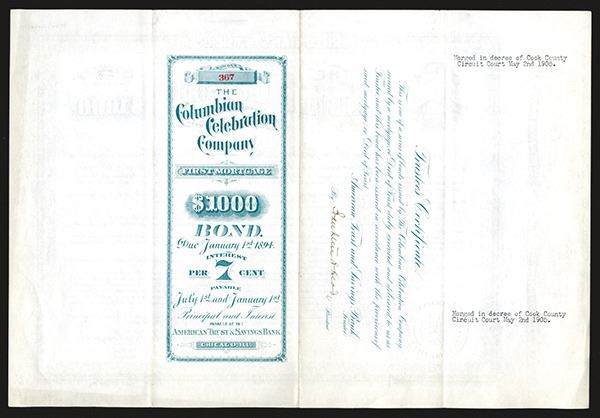 367
THE
Columbian
Celebration
Company
FIRST MORTGAGE
$1000
BOND.
Due January 1st 1894.
INTEREST
PER 7 CENT
PAYABLE
July 1st and January 1st
Principal and Interest
PAYABLE AT THE
AMERICAN TRUST & SAVINGS BANK
CHICAGO, ILL.
Trustee's Certificate
This is one of a series of bonds issued by The Columbian Celebration Company,
secured by a mortgage or Deed of Trust duly executed and delivered to us as
Trustee and this bond has been issued in accordance with the provisions of
said mortgage or Deed of Trust.
American Trust and Savings Bank,
Trustee
By
Merged in decree of Cook County
Circuit Court May 2nd 1905.
Merged in decree of Cook County
Circuit Court May 2nd 1905.